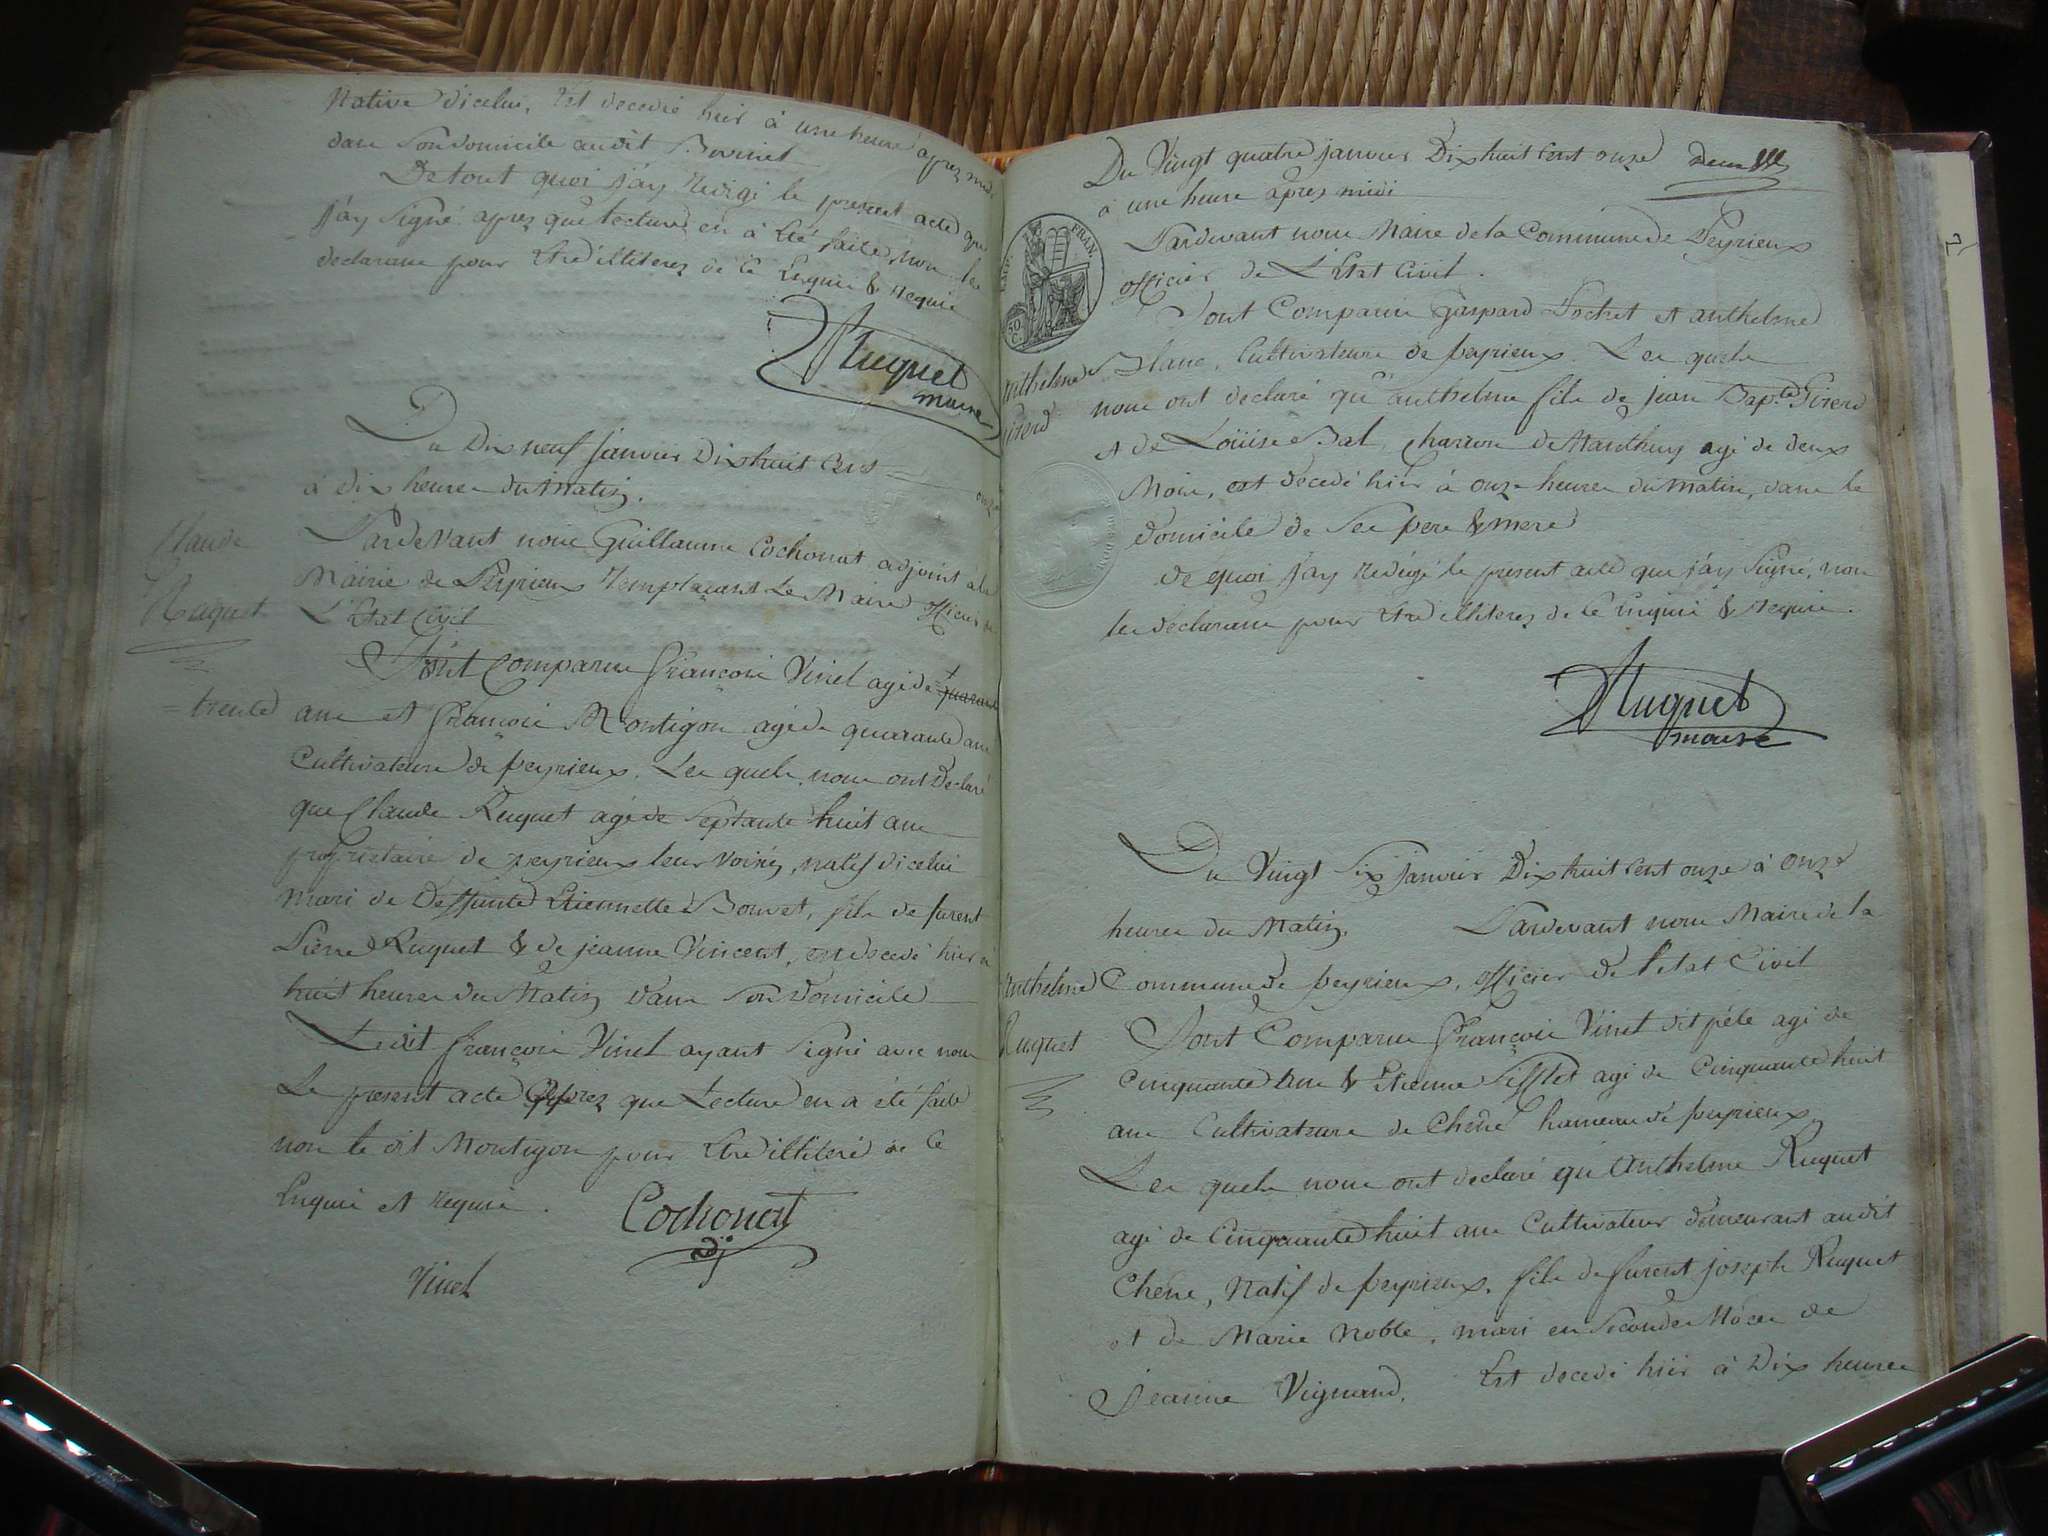 Native d'icelui, Est decedié hier à une heure après midi
dans son domicile audit
De tout quoi j'ay Redigé le present acte que
j'ay Signé après que lecture en à été faite, non les
declarans pour Etre illiterez de ce Enquis & requis
Ruquet
maire
Du Dix neuf janvier Dix huit Cens onze
à dix heures du Matin.
Claude
Ruquet
Pardevant nous Guillaume Cochonat adjoint à la
Mairie de Peyrieux Remplaçant Le Maire officier de
L'Etat Civil
Sont Comparus françois Vinet agé de quarante
= trente
ans et françois Montigon agé de quarante ans
Cultivateurs de peyrieux. Les quels nous ont Declaré
que Claude Ruquet agé de Septante huit ans
proprietaire de peyrieux leur voisin, natif d'icelui
mari de Deffunte Etiennette Bouvet, fils de furent
Pierre Ruquet & de jeanne Vincent, est decedé hier à
huit heures du Matin dans Son Domicile
Ledit françois Vinet ayant Signé avec nous
Le present acte après que Lecture en a été faite
non le dit Montigon pour Etre illiteré de ce
Enquis et requis.
Cochonat
adj.
Vinet
Du Vingt quatre janvier Dix huit Cent onze
à une heure après midi
EMP. FRAN.
50 C.
Pardevant nous Maire de la Commune de Peyrieux
officier de L'Etat Civil.
Sont Comparus Gaspard Pochet et anthelme
Anthelme
Girerd
Blanc, Cultivateurs de peyrieux. Les quels
nous ont declaré qu'anthelme fils de jean Bapte Girerd
et de Loüise Bal, charron de agé de deux
Mois, est decedé hier à onze heures du matin, dans le
domicile de Ses pere & mere
de quoi j'ay redigé le present acte que j'ay Signé, non
les declarans pour Etre illiterez de ce Enquis & requis.
Ruquet
maire
Du Vingt Six janvier Dix huit Cent onze à onze
heures du Matin. Pardevant nous Maire de la
Anthelme
Ruquet
Commune de peyrieux, officier de l'etat Civil
Sont Comparus françois Vinet dit agé de
Cinquante ans & Etienne Sifflet agé de Cinquante huit
ans Cultivateurs de Chêne hameau de peyrieux
Les quels nous ont declaré qu'Anthelme Ruquet
agé de Cinquante huit ans Cultivateur demeurant audit
Chêne, Natif de peyrieux, fils de furent joseph Ruquet
et de Marie Noble, mari en Secondes Nôces de
Jeanne Vignand, Est decedé hier à Dix heures